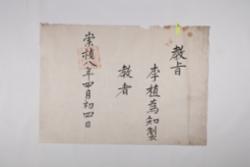 教旨
李植爲知製
教者
崇禎八年四月初四日